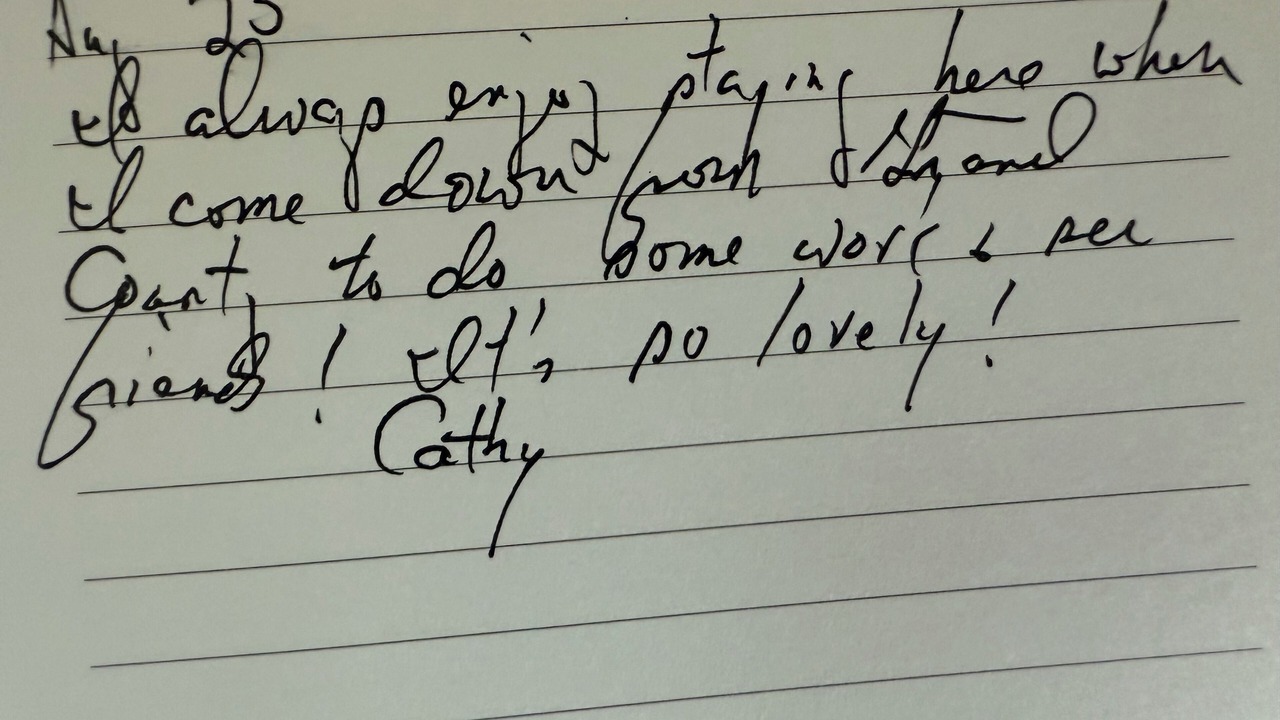 Aug 25
I always enjoy staying here when
I come down from
Coast, to do some work & see
friends! It's so lovely!
Cathy